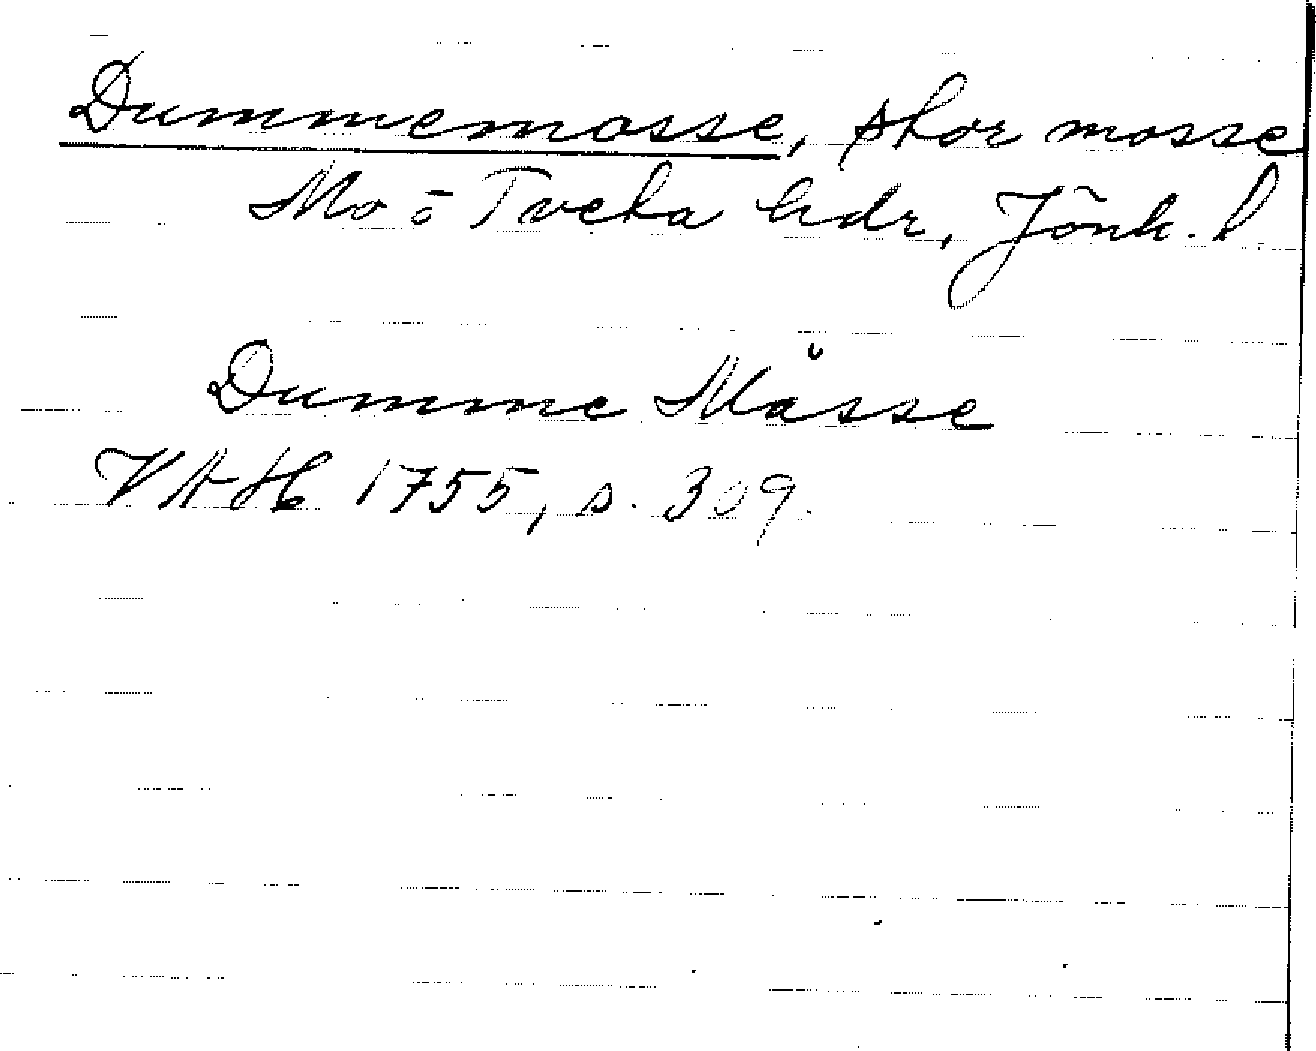 Dummemosse, stor mosse
Mo ō Tveta hdr, Jönk. l
Dumme Måsse
VAH 1755, s. 309.